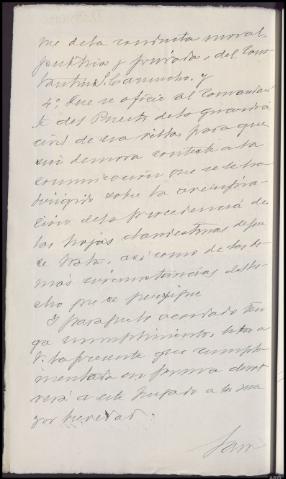 me de la conducta moral
publica y privada, del Cons
tantino Camacho. y
4º Que se oficie al Comandan
te del Puesto de la guardia
civil de esa villa para que
sin demora conteste a la
comunicacion que se le ha
dirigido sobre la averigua
cion de la procedencia de
las hojas clandestinas de que
se trata, asi como de las de
mas circunstancias del he
cho que se persigue
Y para que lo acordado ten
ga cumplimiento, libro a
V. la presente que cumpli
mentada en forma devol
verá a este Juzgado a la ma
yor brevedad.